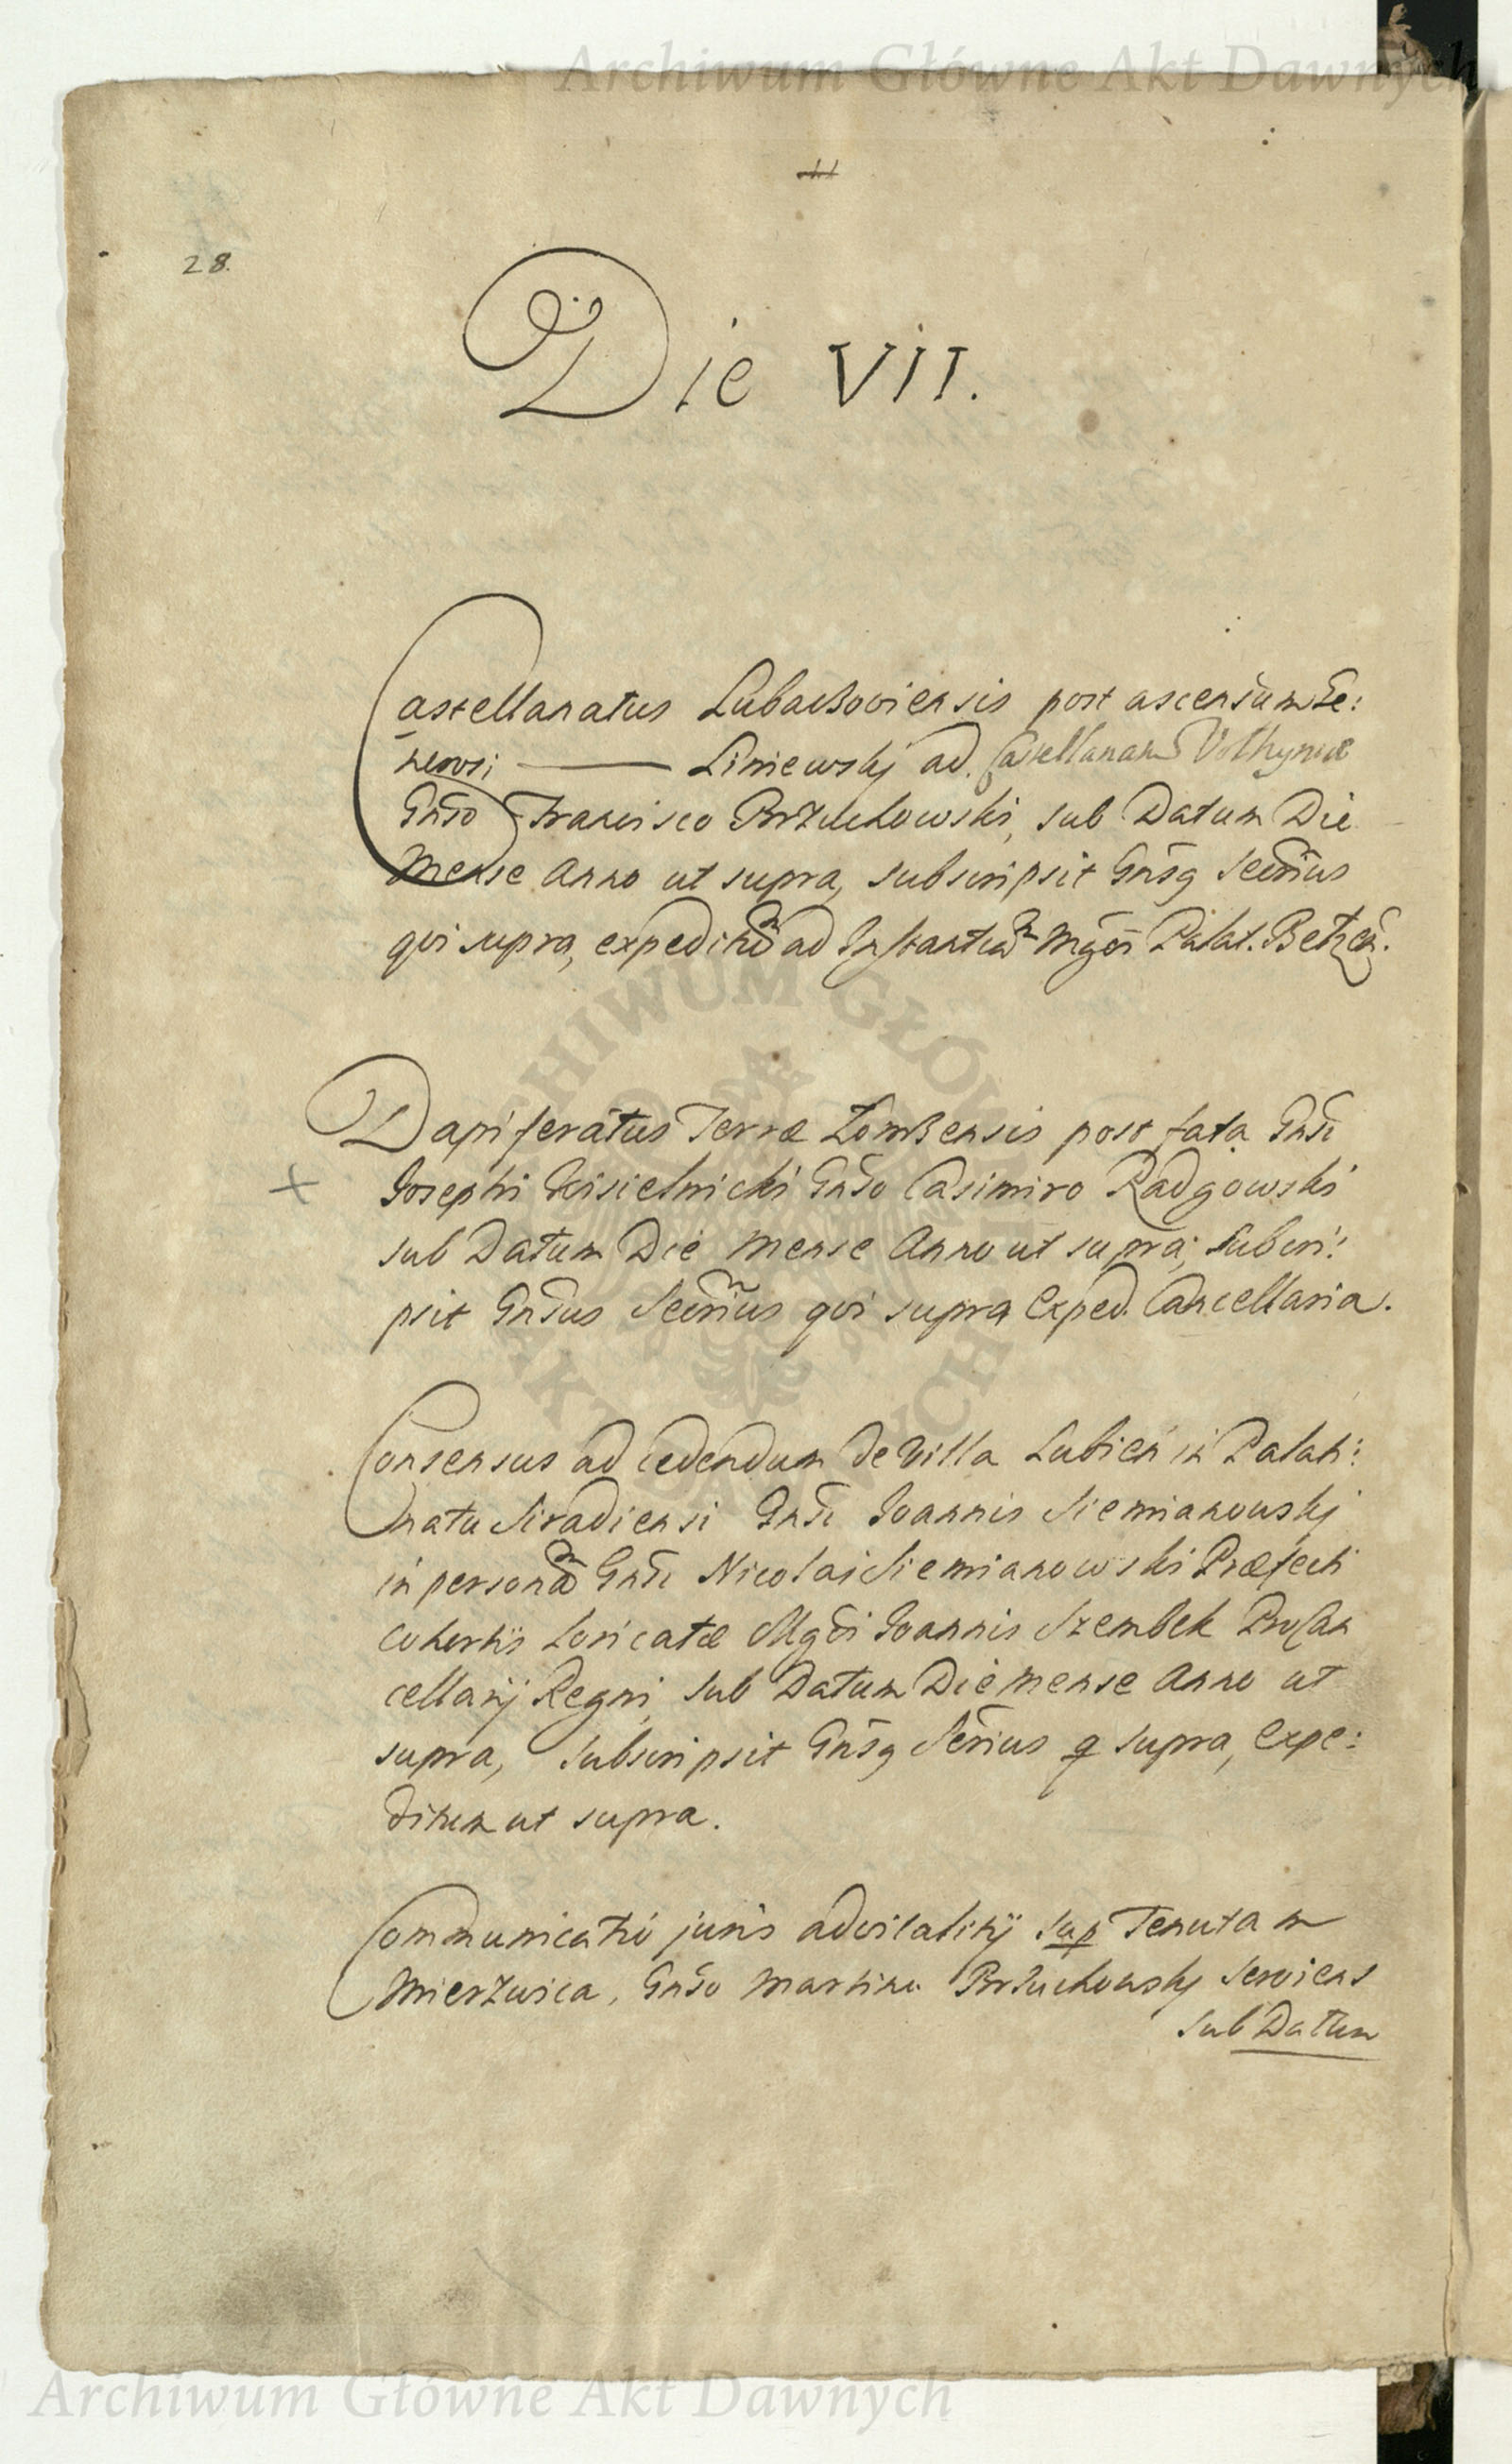 Archiwum Główne Akt Dawnych
28.
Die VII.
Castellanatus Lubaczoviensis post ascensum Ge:
nerosi ——— Liniewskj ad. Castellanam Volhyniæ
Gnso Francisco Brzuchowski, sub Datum Die
Mense Anno ut supra, subscripsit Gnsq Secrius
qvi supra, expeditũ ad Instantiam Mgci Palat. Betzeñ.
Dapiferatus Terræ Łomzensis post fata Gnsi
Josephi Kisielnicki Gnso Casimiro Radgowski
sub Datum Die Mense Anno ut supra, subscri:
psit Gnsus Secrius qvi supra Exped. Cancellaria.
Consensus ad cedendum de Villa Lubień in Palati:
natu Siradiensi Gnsi Joannis Siemianowskj
in personam Gnsi Nicolai Siemianowski Præfecti
cohortis Loricatæ Mgci Joannis Szembek ProCan
cellarij Regni, sub Datum Die Mense Anno ut
supra, subscripsit Gnsq Secrius q supra, expe:
ditum ut supra.
Communicatio juris advitalitij sup Tenutam
Mierzwica, Gnso Martino Brzuchowskj serviens
sub Datum
ARCHIWUM GŁÓWNE AKT DAWNYCH
Archiwum Główne Akt Dawnych